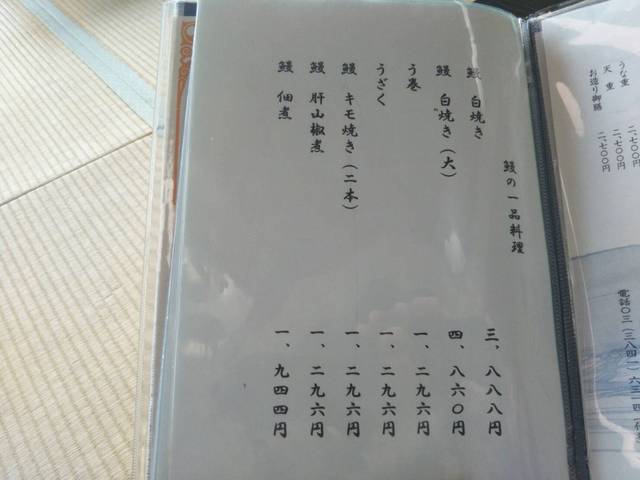 うな重 二、七〇〇円
天重 二、七〇〇円
お造り御膳 二、七〇〇円
鰻の一品料理
鰻 白焼き 三、八八八円
鰻 白焼き(大) 四、八六〇円
う巻 一、二九六円
うざく 一、二九六円
鰻 キモ焼き(二本) 一、二九六円
鰻 肝山椒煮 一、二九六円
鰻 佃煮 一、九四四円